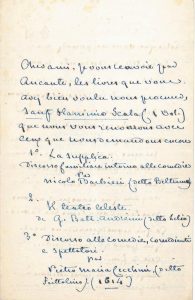 Cher ami. Je vous renvoie par
Ancante, les livres que vous
avez bien voulu nous procurer,
sauf Flaminio Scala (1 Vol.)
que nous vous renverrons avec
ceux que nous demandons encore
1º La Supplica.
Discorso familiare intorno alle comedie
Per
Nicolo Barbieri (detto Beltrame
2. Il teatro celeste
di G. Batt. Andreini (detto Lelio)
3º Discorso alle comedie, comedianti
e spettatori.
par
Pietro Maria Cecchini, (detto
Frittolino) (1614)